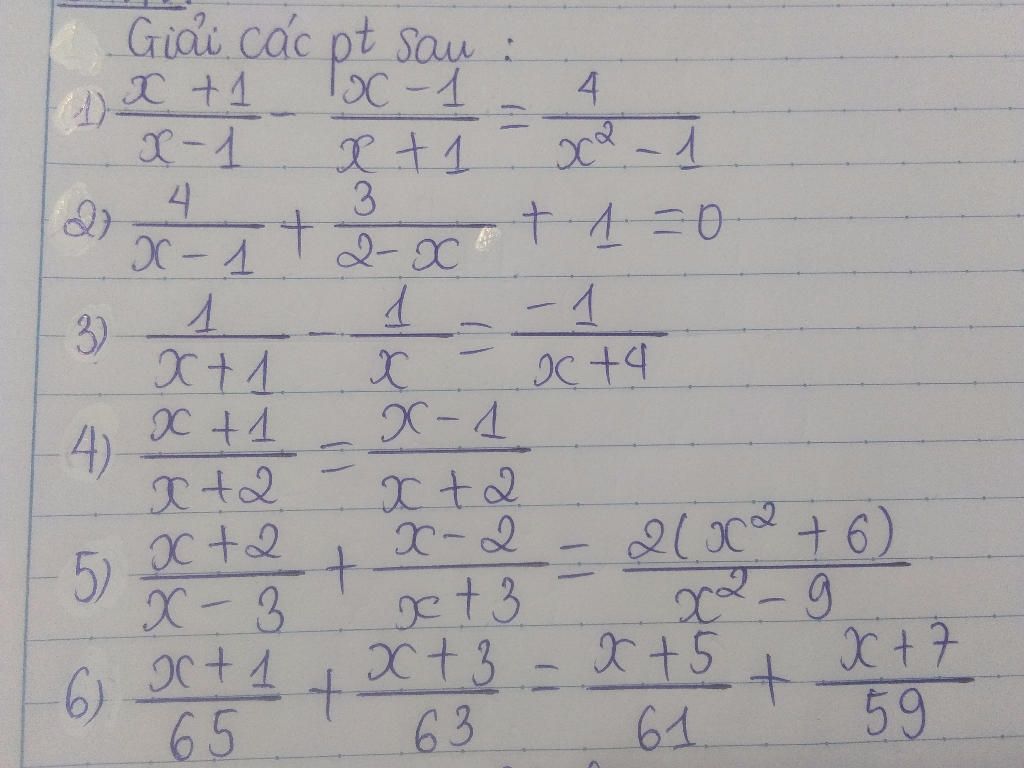 Giải các pt sau :
1) \frac{x+1}{x-1} - \frac{x-1}{x+1} = \frac{4}{x^2-1}
2) \frac{4}{x-1} + \frac{3}{2-x} + 1 = 0
3) \frac{1}{x+1} - \frac{1}{x} = \frac{-1}{x+4}
4) \frac{x+1}{x+2} = \frac{x-1}{x+2}
5) \frac{x+2}{x-3} + \frac{x-2}{x+3} = \frac{2(x^2+6)}{x^2-9}
6) \frac{x+1}{65} + \frac{x+3}{63} = \frac{x+5}{61} + \frac{x+7}{59}